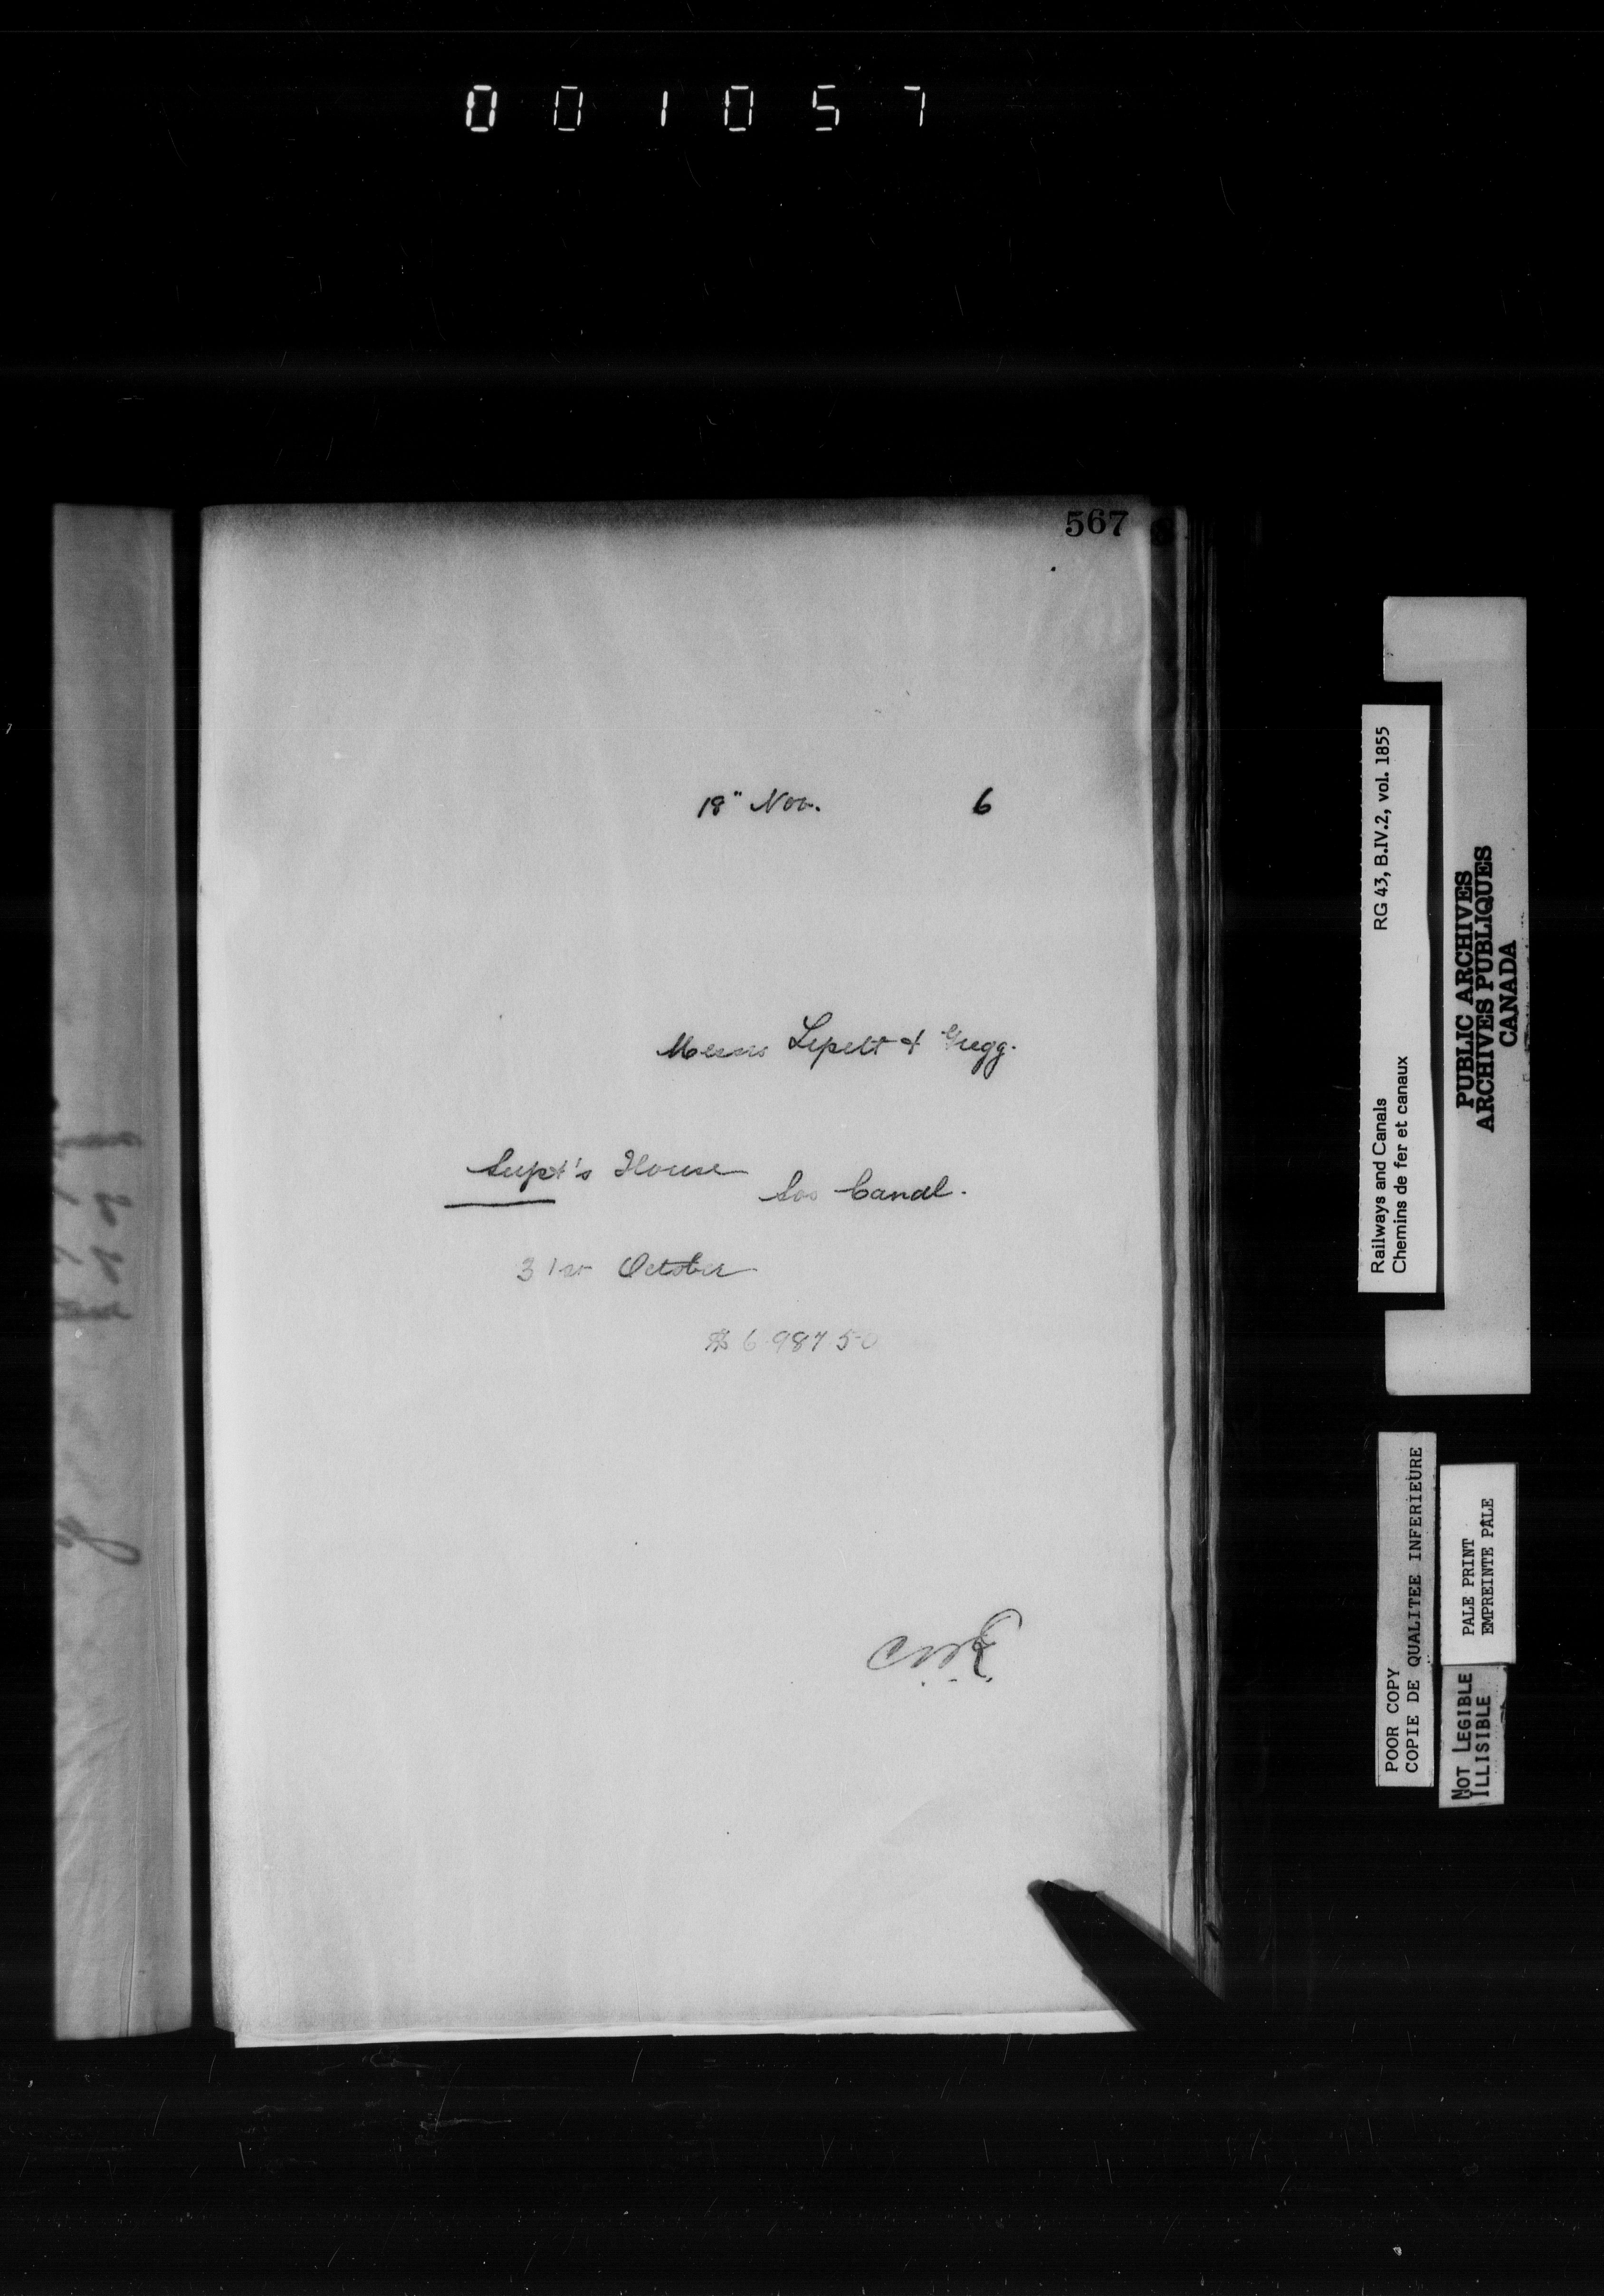 001057
567
18" Nov. 6
Messrs Lepelt & Gregg.
Supt's House
Soo Canal.
31st October
$698750
Railways and Canals RG 43, B.IV.2, vol. 1855
Chemins de fer et canaux
PUBLIC ARCHIVES
ARCHIVES PUBLIQUES
CANADA
POOR COPY
COPIE DE QUALITEE INFERIEURE
PALE PRINT
EMPREINTE PÂLE
NOT LEGIBLE
ILLISIBLE